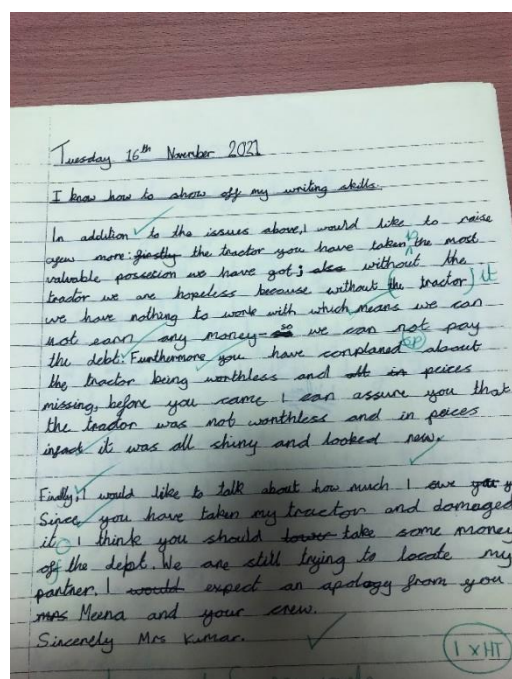 Tuesday 16th November 2021
I know how to show off my writing skills.
In addition to the issues above, I would like to raise
afew more: firstly the tractor you have taken is the most
valuable possesion we have got; also without the
tractor we are hopeless because without the tractor it
we have nothing to work with which means we can
not earn any money - so we can not pay
the debt. Furthermore you have complaned sp abaout
the tractor being worthless and all in peices
missing, before you came I can assure you that
the tractor was not worthless and in peices
infact it was all shiny and looked new.
Finally, I would like to talk about how much I owe you
Since you have taken my tractor and damaged
it I think you should lower take some money
off the dept. We are still trying to locate my
partner. I would expect an apology from you
mrs Meena and your crew.
Sincerely Mrs Kumar.
1 x HT